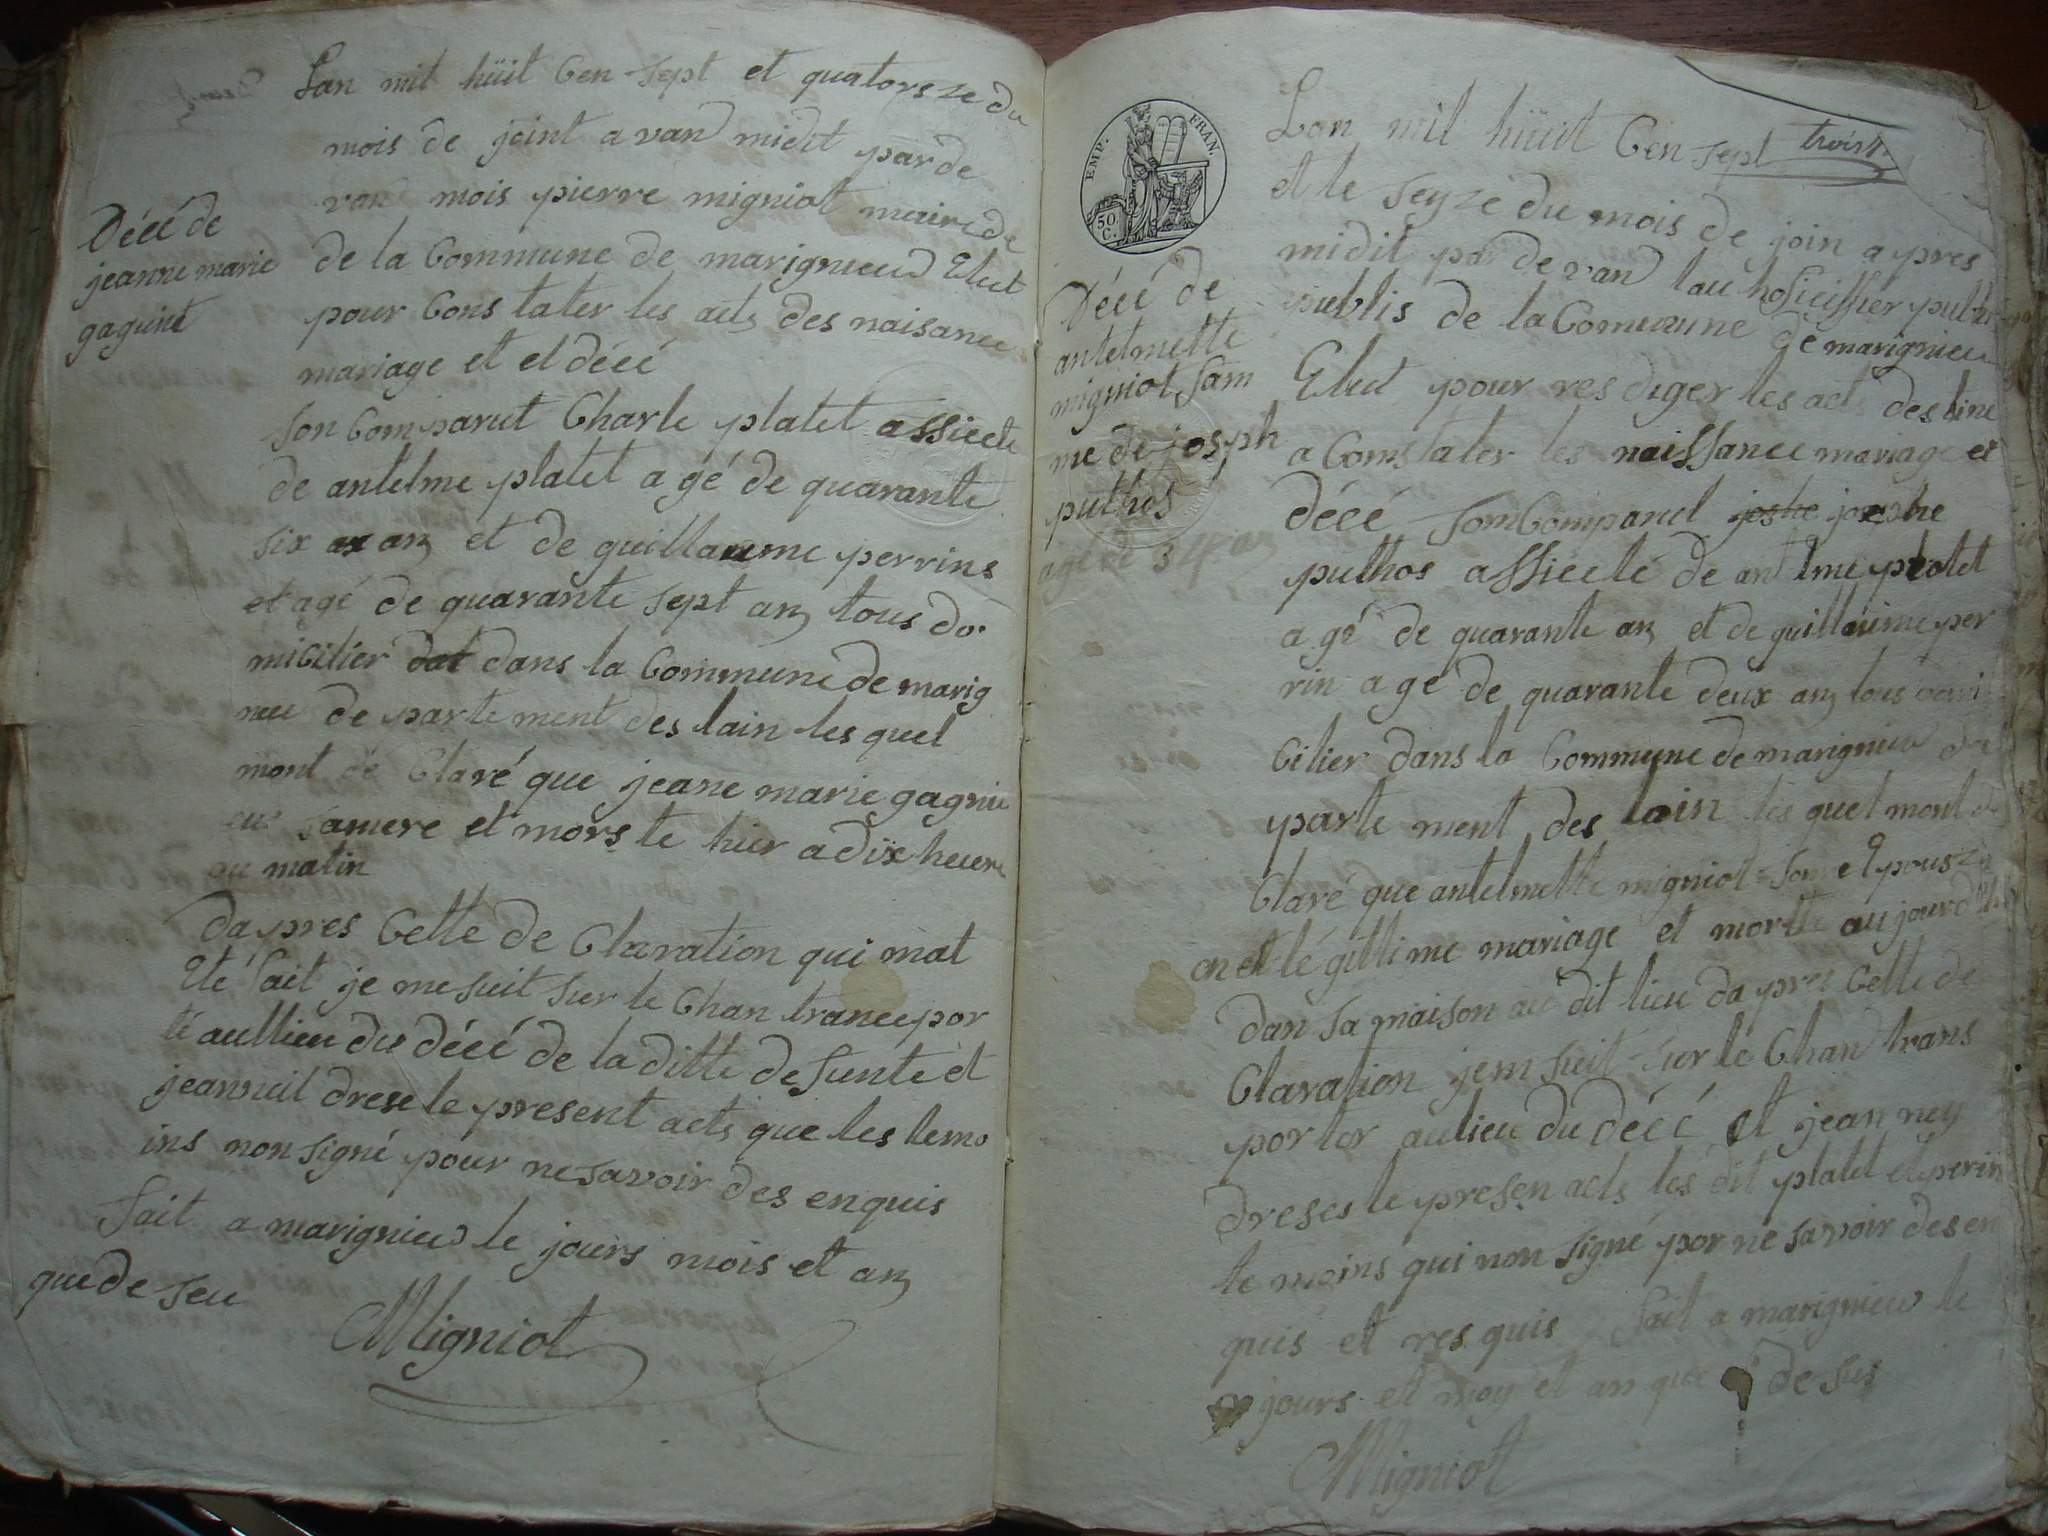 Lan mil hüit Cen sept et quatorsze du
mois de joint a van midit parde
van mois pierre migniot mairede
de la Commune de marignieu Elut
pour Cons tater les acts des naisance
mariage et et déCé
Décé de
jeanne marie
gaguint
son Comparut Charle platet assiecte
de antelme platet a gé de quarante
six an et de guillaume perrins
et agé de quarante sept an tous do
micilier dat dans la Commune de marig
nieu de parte ment des lain les quel
mont dé Claré que jeane marie gagnie
samere et mors te hier a dix heure
au matin
dapres Cette de Claration qui mat
Eté fait je me suit sur le Chan trancepor
té aullieu du déCé de la ditte defunte et
jeanneuil drese le present acts que les temo
ins non signé pour ne savoir des enquis
fait a marignieu le jours mois et an
que de seu
Migniot
EMP. FRAN.
50 C.
trois
Lan mil hüit Cen sept
et le seyze du mois de join a pres
midit par de van lau hofficissier public
publis de la Commune de marignieu
Elut pour res diger les acts des tine
a Cons tater les naissance mariage et
Décé de
antelmette
migniot fam
me de josph
puthos
agé de 34 an
déCé son Comparut joshe josephe
puthos assiecté de antelme platet
a gé de quarante an et de guillaume per
rin a gé de quarante deux an tous domi
Cilier dans la Commune de marignieu de
parte ment des lain les quel mont de
Claré que antelmette migniot son Epouse
on et lé gittime mariage et morte au jourdhui
dan sa maison au dit lieu da pres Cette de
Claration jem suit sur le Chan trans
porter au lieu du déCé et jean ney
dreses le presen acts les dit platet et perin
te moins qui non signé por ne savoir des en
quis et res quis fait a marignieu le
jours et moy et an que de sus
Migniot